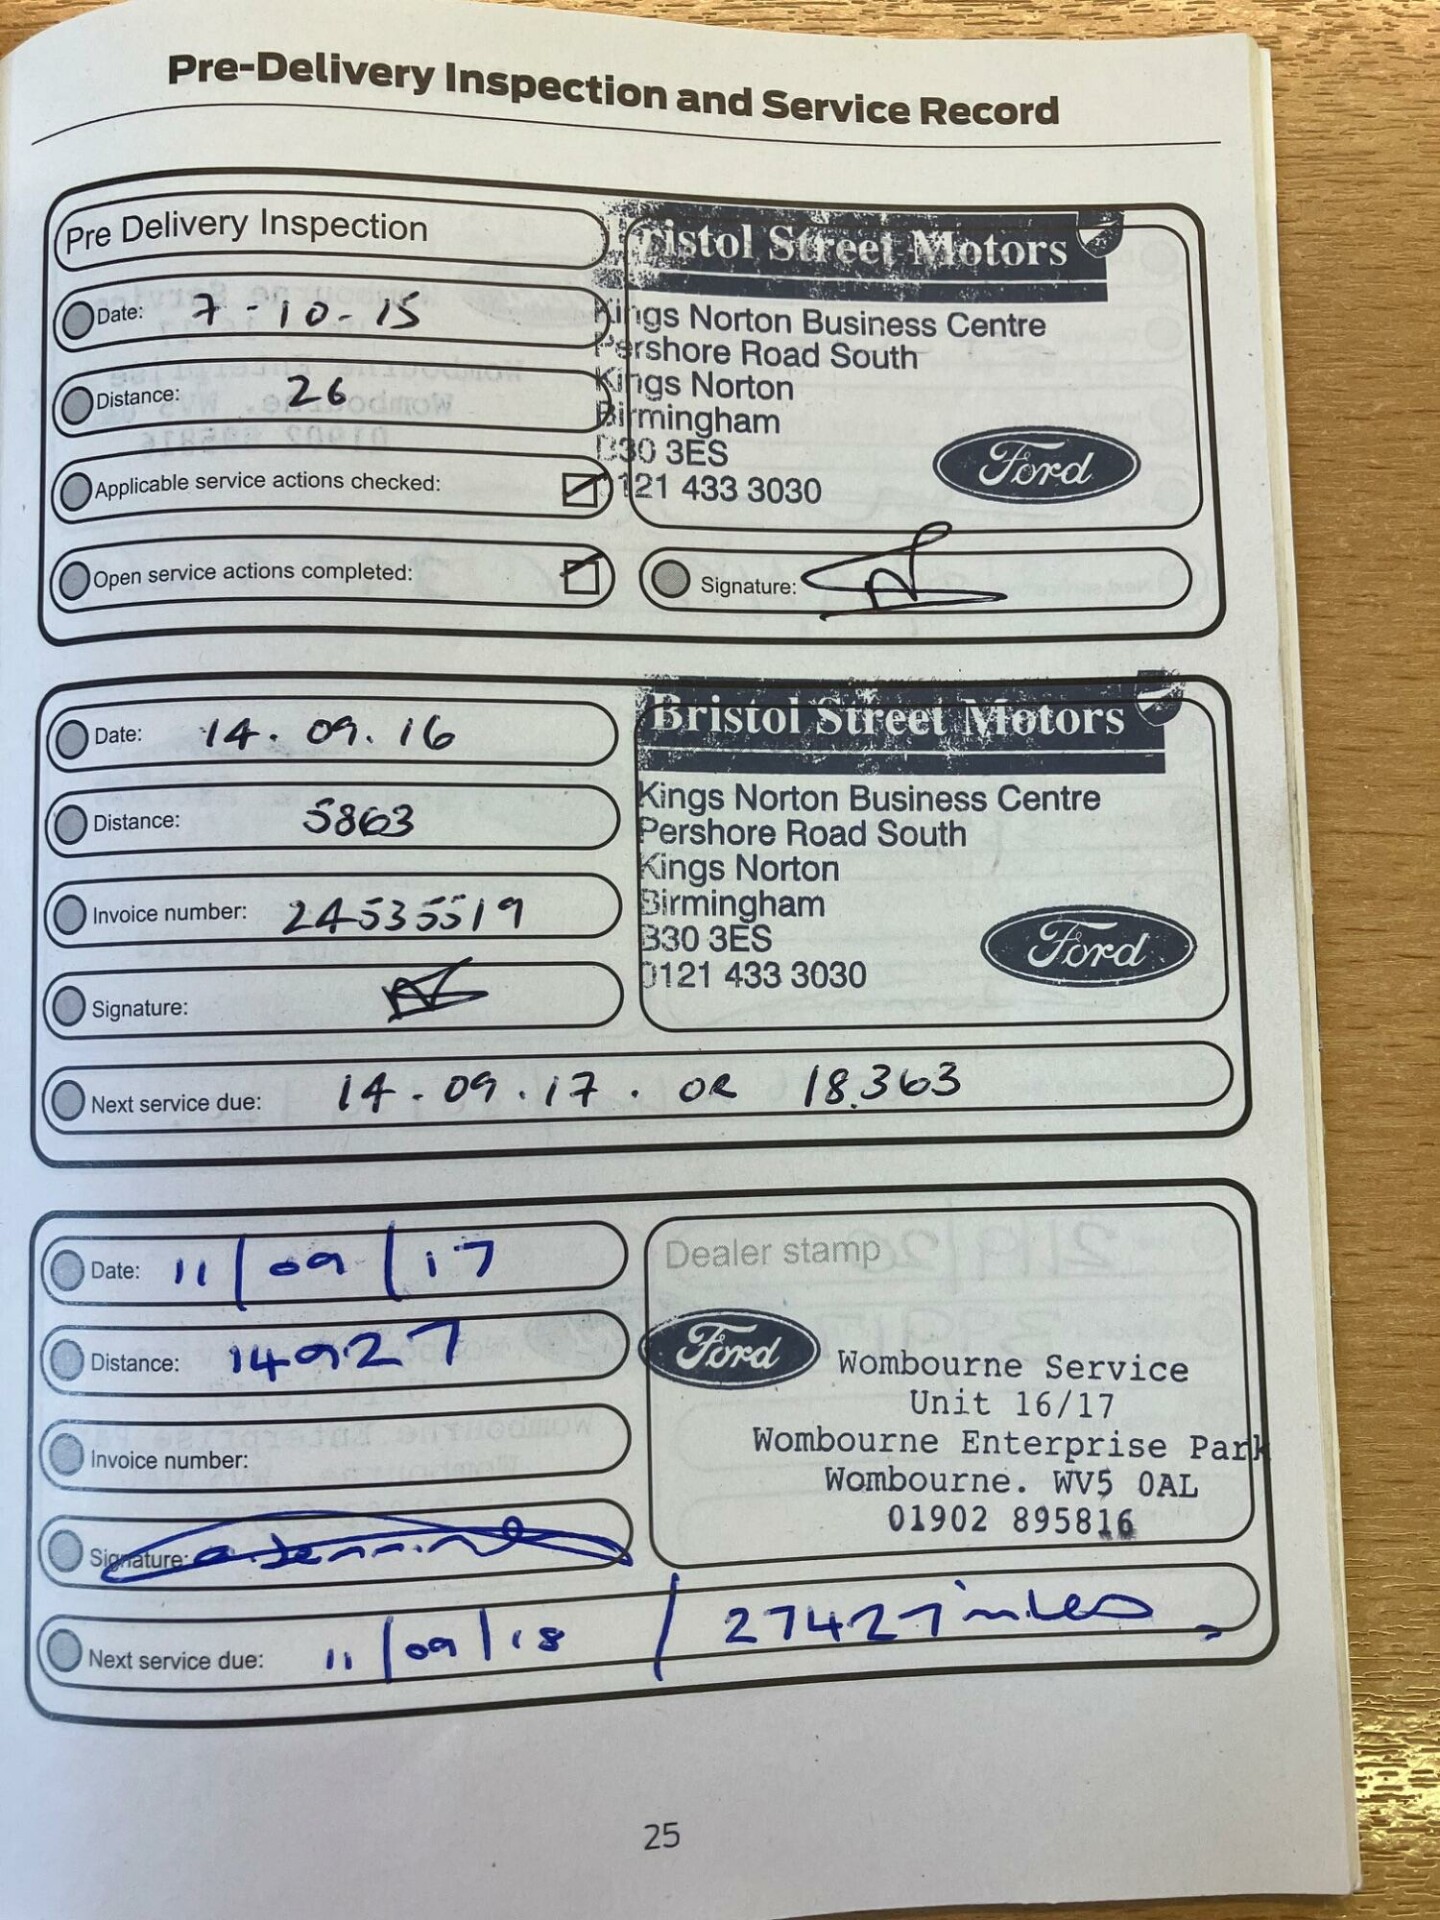 Pre-Delivery Inspection and Service Record
Pre Delivery Inspection
Date: 7-10-15
Distance: 26
Applicable service actions checked:
Open service actions completed:
Bristol Street Motors
Kings Norton Business Centre
Pershore Road South
Kings Norton
Birmingham
B30 3ES
0121 433 3030
Ford
Signature:
Date: 14.09.16
Distance: 5863
Invoice number: 24535519
Signature:
Bristol Street Motors
Kings Norton Business Centre
Pershore Road South
Kings Norton
Birmingham
B30 3ES
0121 433 3030
Ford
Next service due: 14.09.17. OR 18.363
Date: 11/09/17
Distance: 14927
Invoice number:
Signature:
Dealer stamp
Ford
Wombourne Service
Unit 16/17
Wombourne Enterprise Park
Wombourne. WV5 0AL
01902 895816
Next service due: 11/09/18 / 27427 miles
25